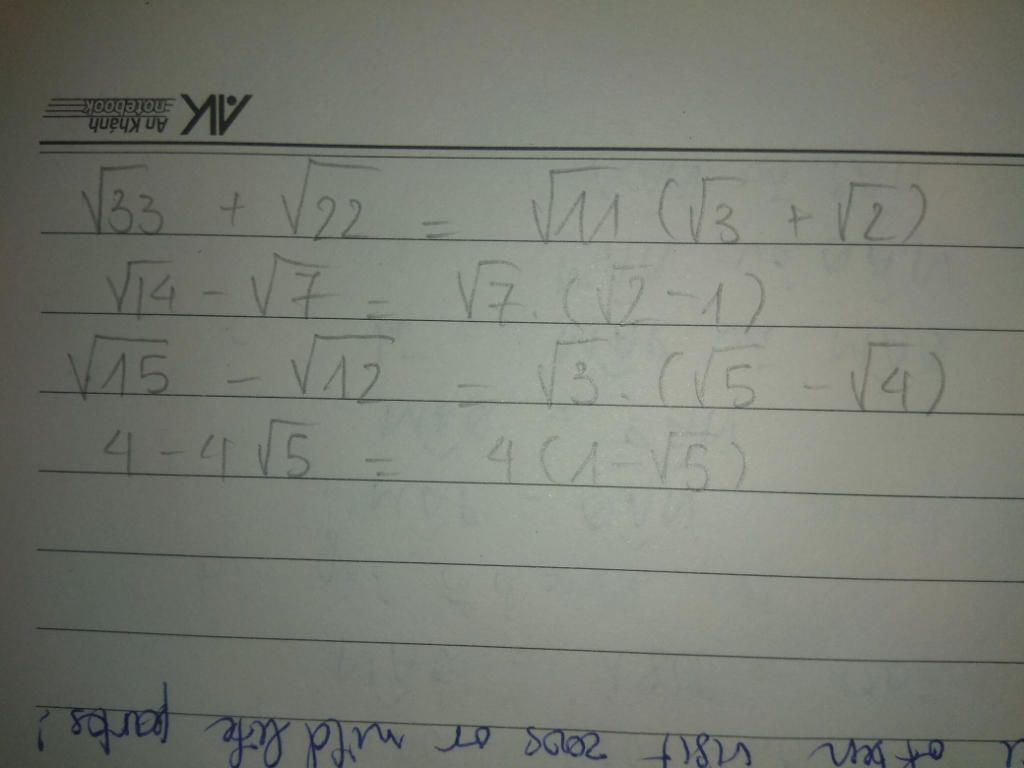 AK An Khánh notebook
√33 + √22 = √11 (√3 + √2)
√14 - √7 = √7 . (√2 - 1)
√15 - √12 = √3 . (√5 - √4)
4 - 4√5 = 4 (1 - √5)
often visit zoos or wild life parks?